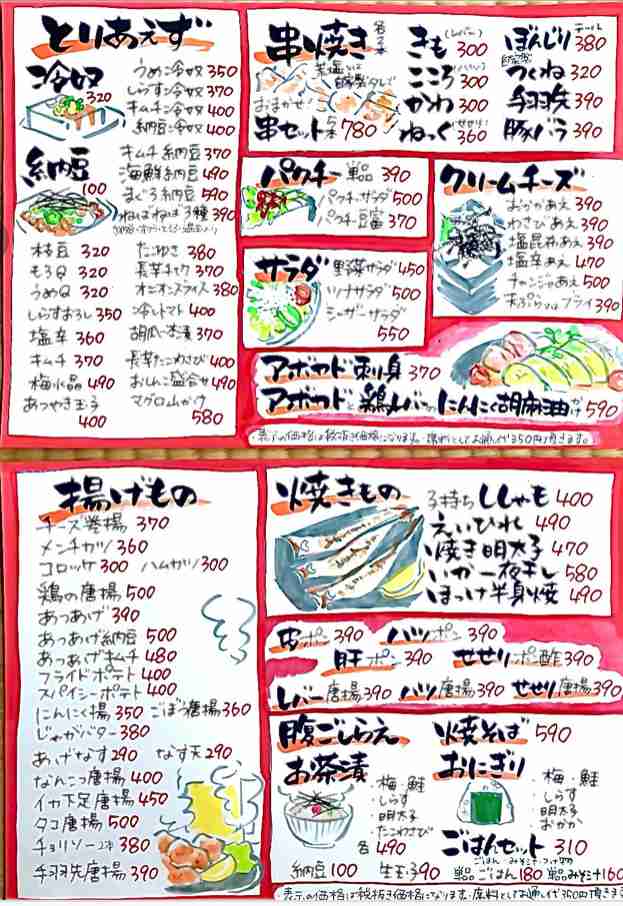 とりあえず
冷奴
320
うめ冷奴 350
しらす冷奴 370
キムチ冷奴 400
納豆冷奴 400
納豆
100
キムチ納豆 370
海鮮納豆 490
まぐろ納豆 590
ねばねば3種 390
枝豆 320
もろQ 320
うめQ 320
しらすおろし 350
塩辛 360
キムチ 370
梅水晶 490
あつやき玉子
400
たこゆき 380
長芋千切 370
オニオンスライス 380
冷しトマト 400
胡瓜一本漬 370
長芋たこわさび 400
おしんこ盛合せ 490
マグロ山かけ
580
串焼き
おまかせ!
串セット 5本 780
きも(レバー) 300
こころ(ハツ) 300
かわ 300
ねっく(せせり) 360
ぼんじり(テール) 380
つくね 320
手羽先 390
豚バラ 390
パクチー 単品 390
パクチーサラダ 500
パクチー豆腐 370
サラダ
野菜サラダ 450
ツナサラダ 500
シーザーサラダ
550
クリームチーズ
おかかあえ 390
わさびあえ 390
塩昆布あえ 390
塩辛あえ 470
チャンジャあえ 500
天ぷら or フライ 390
アボカド刺身 370
アボカド鶏レバーのにんにく胡麻油がけ 590
・表示の価格は税抜き価格になります。席料としてお通し代350円頂きます。
揚げもの
チーズ巻揚 370
メンチカツ 360
コロッケ 300 ハムカツ 300
鶏の唐揚 500
あつあげ 390
あつあげ納豆 500
あつあげキムチ 480
フライドポテト 400
スパイシーポテト 400
にんにく揚 350 ごぼう唐揚 360
じゃがバター 380
あげなす 290 なす天 290
なんこつ唐揚 400
イカ下足唐揚 450
タコ唐揚 500
チョリソー2本 380
手羽先唐揚 390
焼きもの
子持ちししゃも 400
えいひれ 490
焼き明太子 470
いか一夜干し 580
ほっけ半身焼 490
皮ポン 390 ハツポン 390
肝ポン 390 せせりポン酢 390
レバー唐揚 390 ハツ唐揚 390 せせり唐揚 390
腹ごしらえ
お茶漬
・梅・鮭
・しらす
・明太子
・たこわさび
各 490
納豆 100 生玉子 90
焼そば 590
おにぎり
・梅・鮭
・しらす
・明太子
・おかか
ごはんセット 310
ごはん・みそ汁・つけ物
単品ごはん 180 単品みそ汁 160
・表示の価格は税抜き価格になります・席料としてお通し代350円頂きます